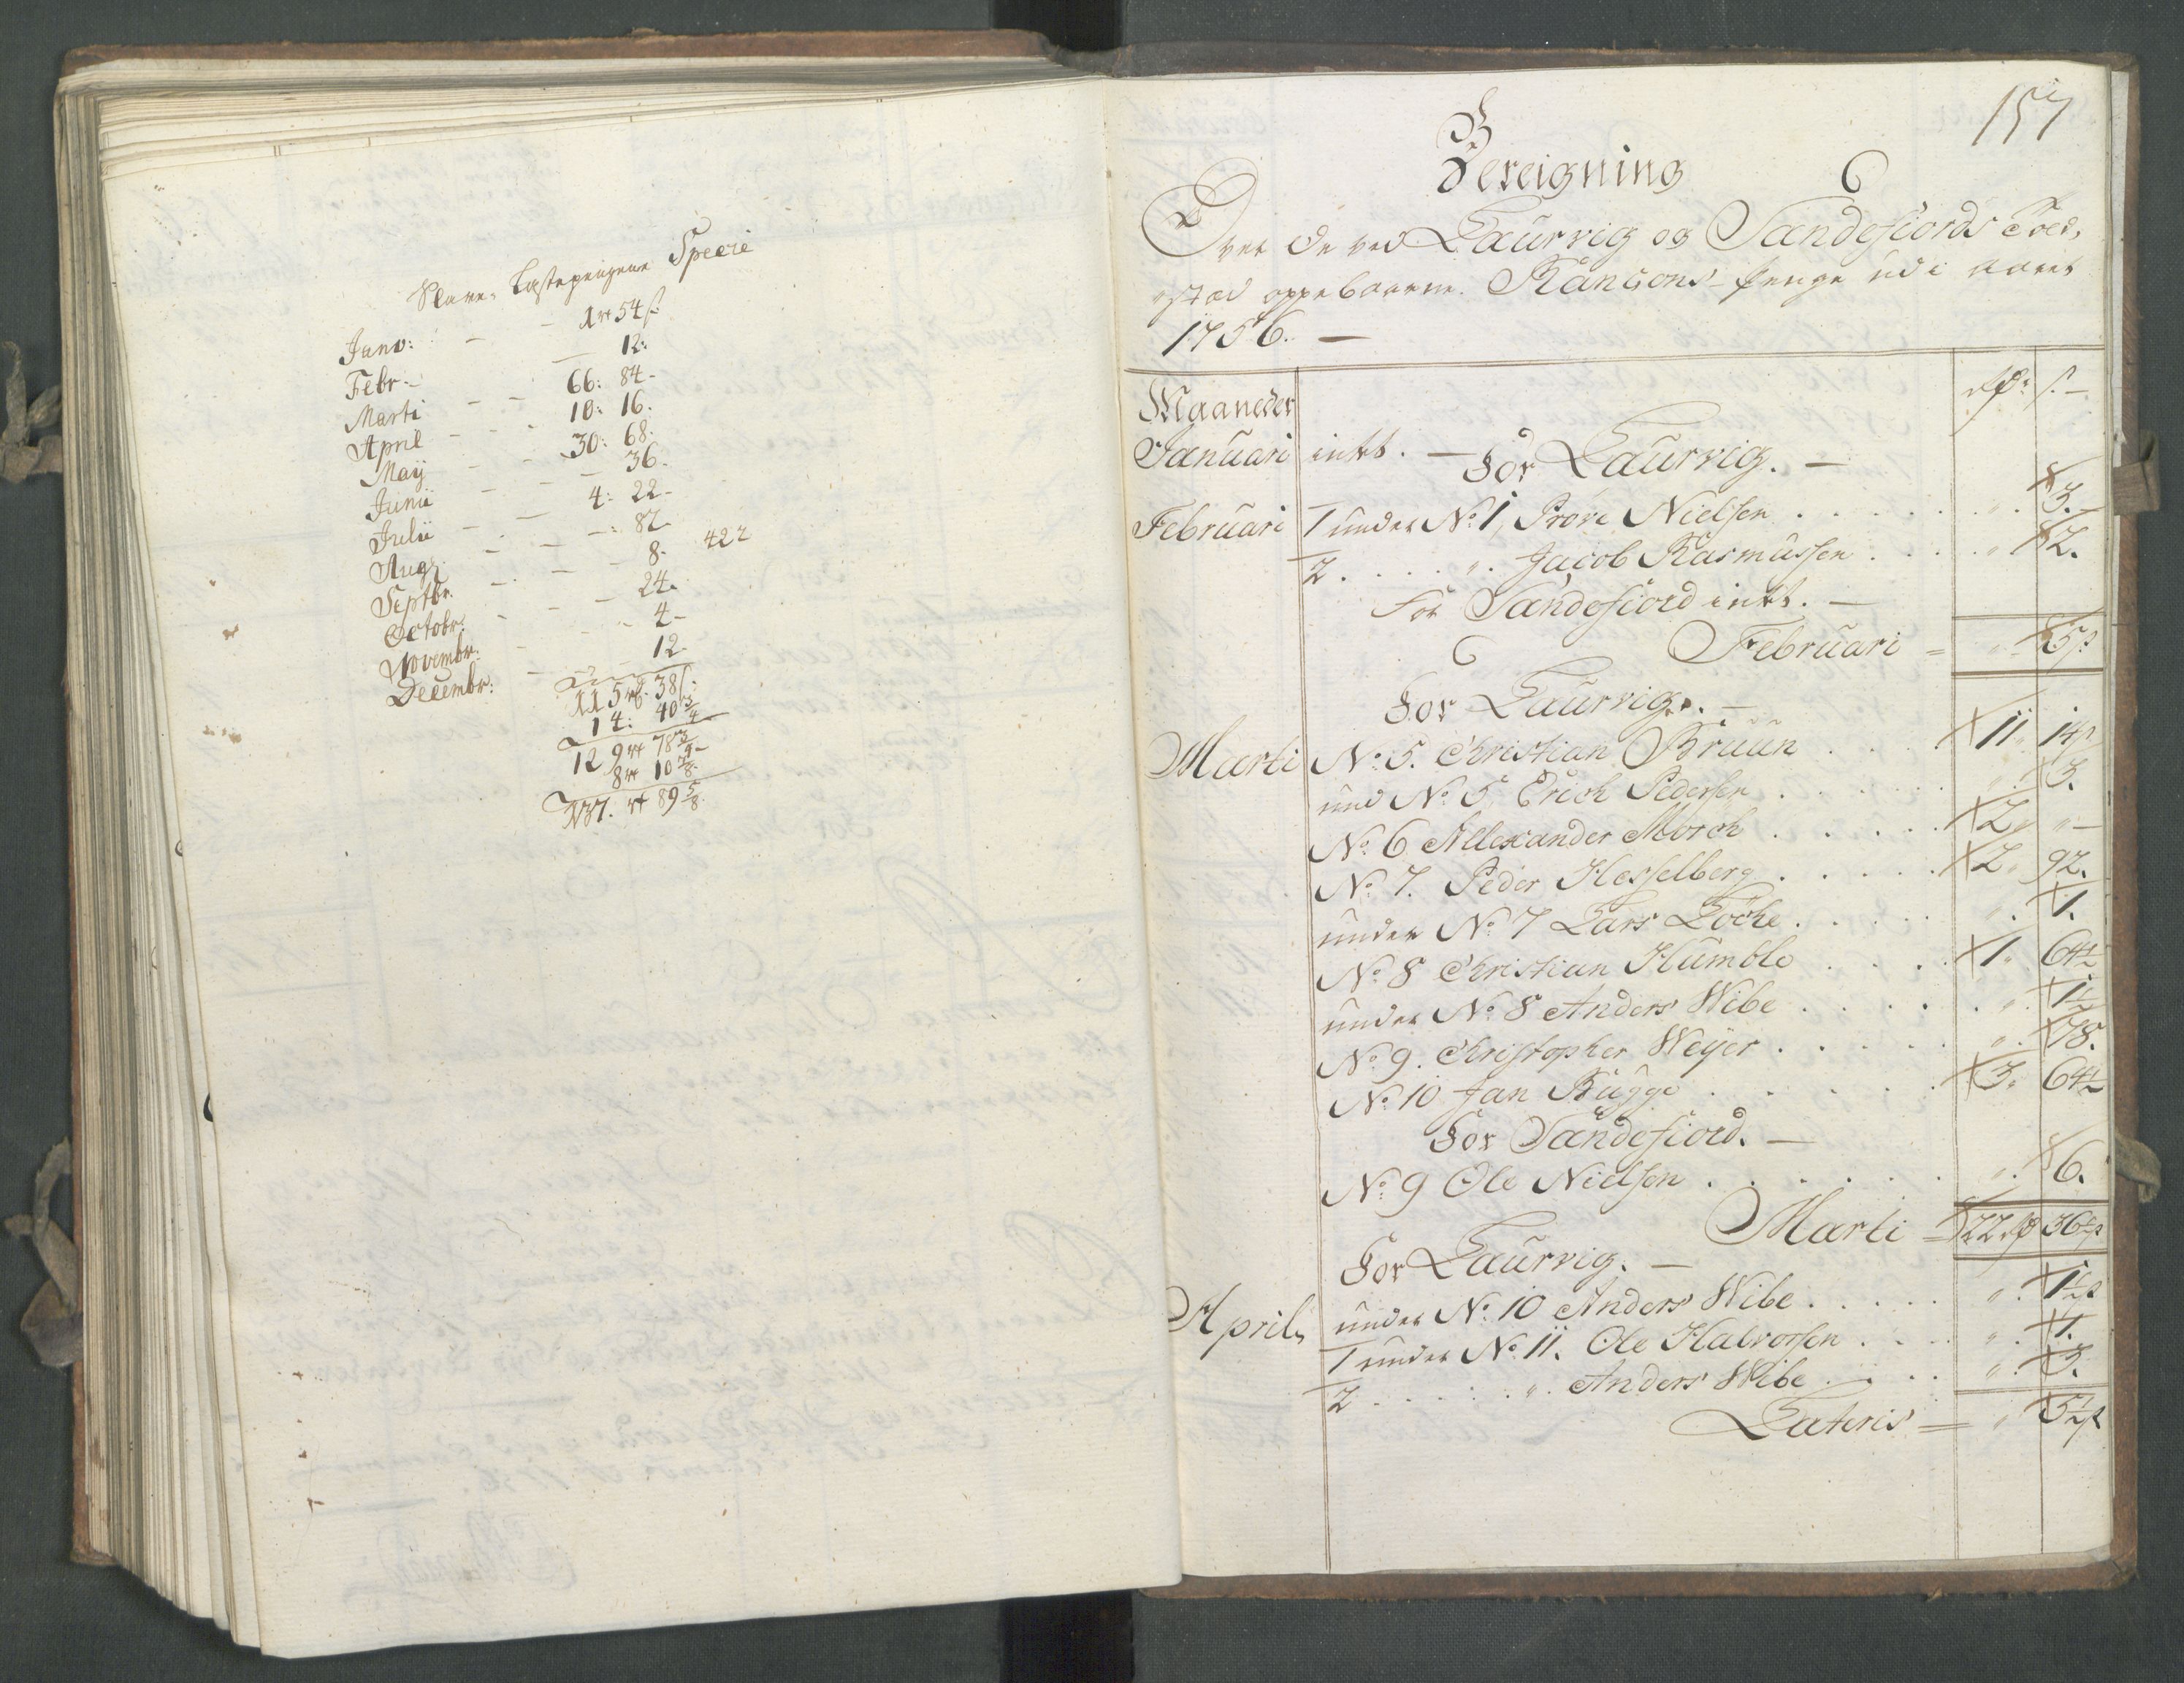 Slave- Lastepengene Specie
Janv: - - 1 rt 54 s
Febr. - 12:
Marti - - 66: 84-
April - - 10: 16.
Maÿ - - 30: 68.
Junii - - 36-
Julii - - 4: 22-
Aug: - - -: 82.
Septbr. - - 8- 422
Octobr: - - 24.
Novembr: - - 4-
Decembr: - - 12-
115 rt 38 s.
14: 40 3/4
129 rt 78 3/4-
8 rt 10 7/8-
137. rt 89 5/8.
157
Bereigning
Over de ved Laurvig og Sandefiords Told-
stæd oppebaarne Rançons-Penge udi aaret
1756. -
Maaneder
rdr: s. -
Januari intet. -
For Laurvig. -
Februari 1 under No: 1, Prove Nielsen . . . . . . . 3.-
2 . . . . " . Jacob Rasmussen . . . . " 2.
For Sandefiord intet. -
Februari = " 5 s
For Laurvig. -
Marti No: 5. Christian Bruun . . . 11 " 14 s
und No 5 Erich Pedersen . . . . . . " 3.
No: 6 Allexander Morch . . . . . 2 " " -
No: 7. Peder Hesselberg . . . . . 2 " 92.
under No: 7 Lars Loche . . . . . " . 1.
No: 8 Christian Humble . . . . 1 " 64 1/2
under No: 8 Anders Wibe . . . . . . " . 1 1/2
No: 9. Christopher Weÿer . . . . . " . 78.
No: 10 Jan Bugge . . . . . . 3 " 64 1/2
For Sandefiord. -
No: 9 Ole Nielsen . . . . . . " . 6.
Marti = 22 rd 36 1/2 s
For Laurvig. -
April, under No: 10 Anders Wibe . . . . . " . 1 1/2 s
1 under No: 11. Ole Halvorsen . . . . " . 1.
2 . . . . . " . Anders Wibe . . . . " . 3.
Lateris = " 5 1/2 s